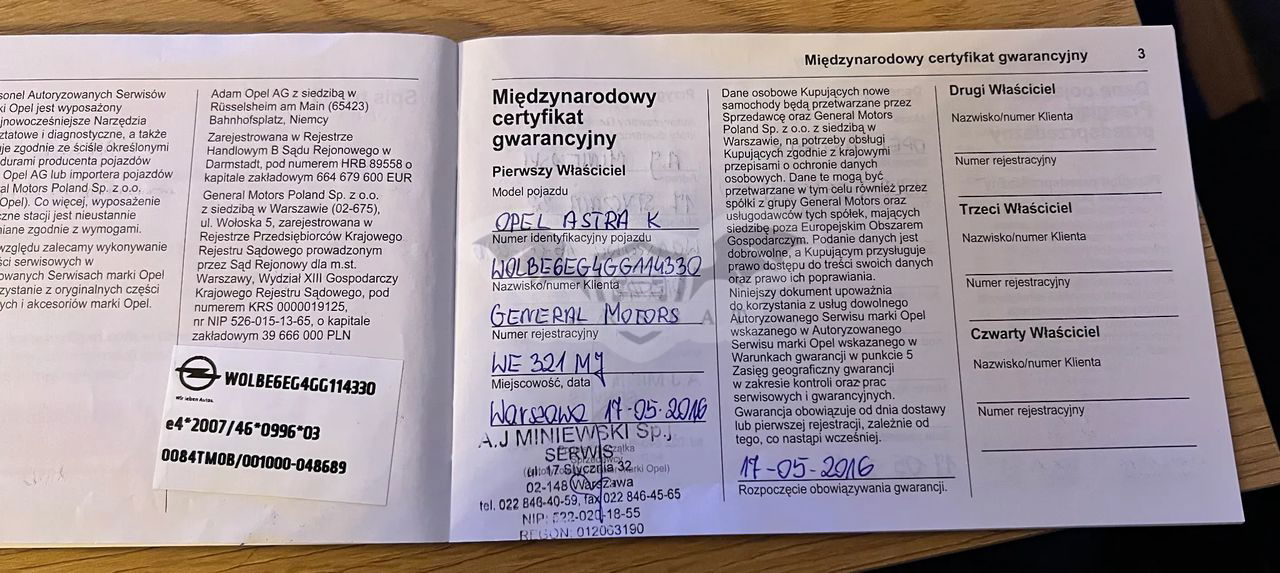 sonel Autoryzowanych Serwisów
ki Opel jest wyposażony
jnowocześniejsze Narzędzia
ztatowe i diagnostyczne, a także
uje zgodnie ze ściśle określonymi
durami producenta pojazdów
Opel AG lub importera pojazdów
al Motors Poland Sp. z o.o.
Opel). Co więcej, wyposażenie
czne stacji jest nieustannie
niane zgodnie z wymogami.
względu zalecamy wykonywanie
ści serwisowych w
owanych Serwisach marki Opel
zystanie z oryginalnych części
ych i akcesoriów marki Opel.
Adam Opel AG z siedzibą w
Rüsselsheim am Main (65423)
Bahnhofsplatz, Niemcy
Zarejestrowana w Rejestrze
Handlowym B Sądu Rejonowego w
Darmstadt, pod numerem HRB 89558 o
kapitale zakładowym 664 679 600 EUR
General Motors Poland Sp. z o.o.
z siedzibą w Warszawie (02-675),
ul. Wołoska 5, zarejestrowana w
Rejestrze Przedsiębiorców Krajowego
Rejestru Sądowego prowadzonym
przez Sąd Rejonowy dla m.st.
Warszawy, Wydział XIII Gospodarczy
Krajowego Rejestru Sądowego, pod
numerem KRS 0000019125,
nr NIP 526-015-13-65, o kapitale
zakładowym 39 666 000 PLN
W0LBE6EG4GG114330
Wir leben Autos.
e4*2007/46*0996*03
0084TM0B/001000-048689
Międzynarodowy certyfikat gwarancyjny 3
Międzynarodowy
certyfikat
gwarancyjny
Pierwszy Właściciel
Model pojazdu
OPEL ASTRA K
Numer identyfikacyjny pojazdu
W0LBE6EG4GG114330
Nazwisko/numer Klienta
GENERAL MOTORS
Numer rejestracyjny
WE 321 MJ
Miejscowość, data
Warszawa 17-05-2016
A.J MINIEWSKI Sp.j
SERWIS
ul. 17 Stycznia 32
02-148 Warszawa
tel. 022 846-40-59, fax 022 846-45-65
NIP: 522-020-18-55
REGON: 012063190
Dane osobowe Kupujących nowe
samochody będą przetwarzane przez
Sprzedawcę oraz General Motors
Poland Sp. z o.o. z siedzibą w
Warszawie, na potrzeby obsługi
Kupujących zgodnie z krajowymi
przepisami o ochronie danych
osobowych. Dane te mogą być
przetwarzane w tym celu również przez
spółki z grupy General Motors oraz
usługodawców tych spółek, mających
siedzibę poza Europejskim Obszarem
Gospodarczym. Podanie danych jest
dobrowolne, a Kupującym przysługuje
prawo dostępu do treści swoich danych
oraz prawo ich poprawiania.
Niniejszy dokument upoważnia
do korzystania z usług dowolnego
Autoryzowanego Serwisu marki Opel
wskazanego w Autoryzowanego
Serwisu marki Opel wskazanego w
Warunkach gwarancji w punkcie 5
Zasięg geograficzny gwarancji
w zakresie kontroli oraz prac
serwisowych i gwarancyjnych.
Gwarancja obowiązuje od dnia dostawy
lub pierwszej rejestracji, zależnie od
tego, co nastąpi wcześniej.
17-05-2016
Rozpoczęcie obowiązywania gwarancji.
Drugi Właściciel
Nazwisko/numer Klienta
Numer rejestracyjny
Trzeci Właściciel
Nazwisko/numer Klienta
Numer rejestracyjny
Czwarty Właściciel
Nazwisko/numer Klienta
Numer rejestracyjny